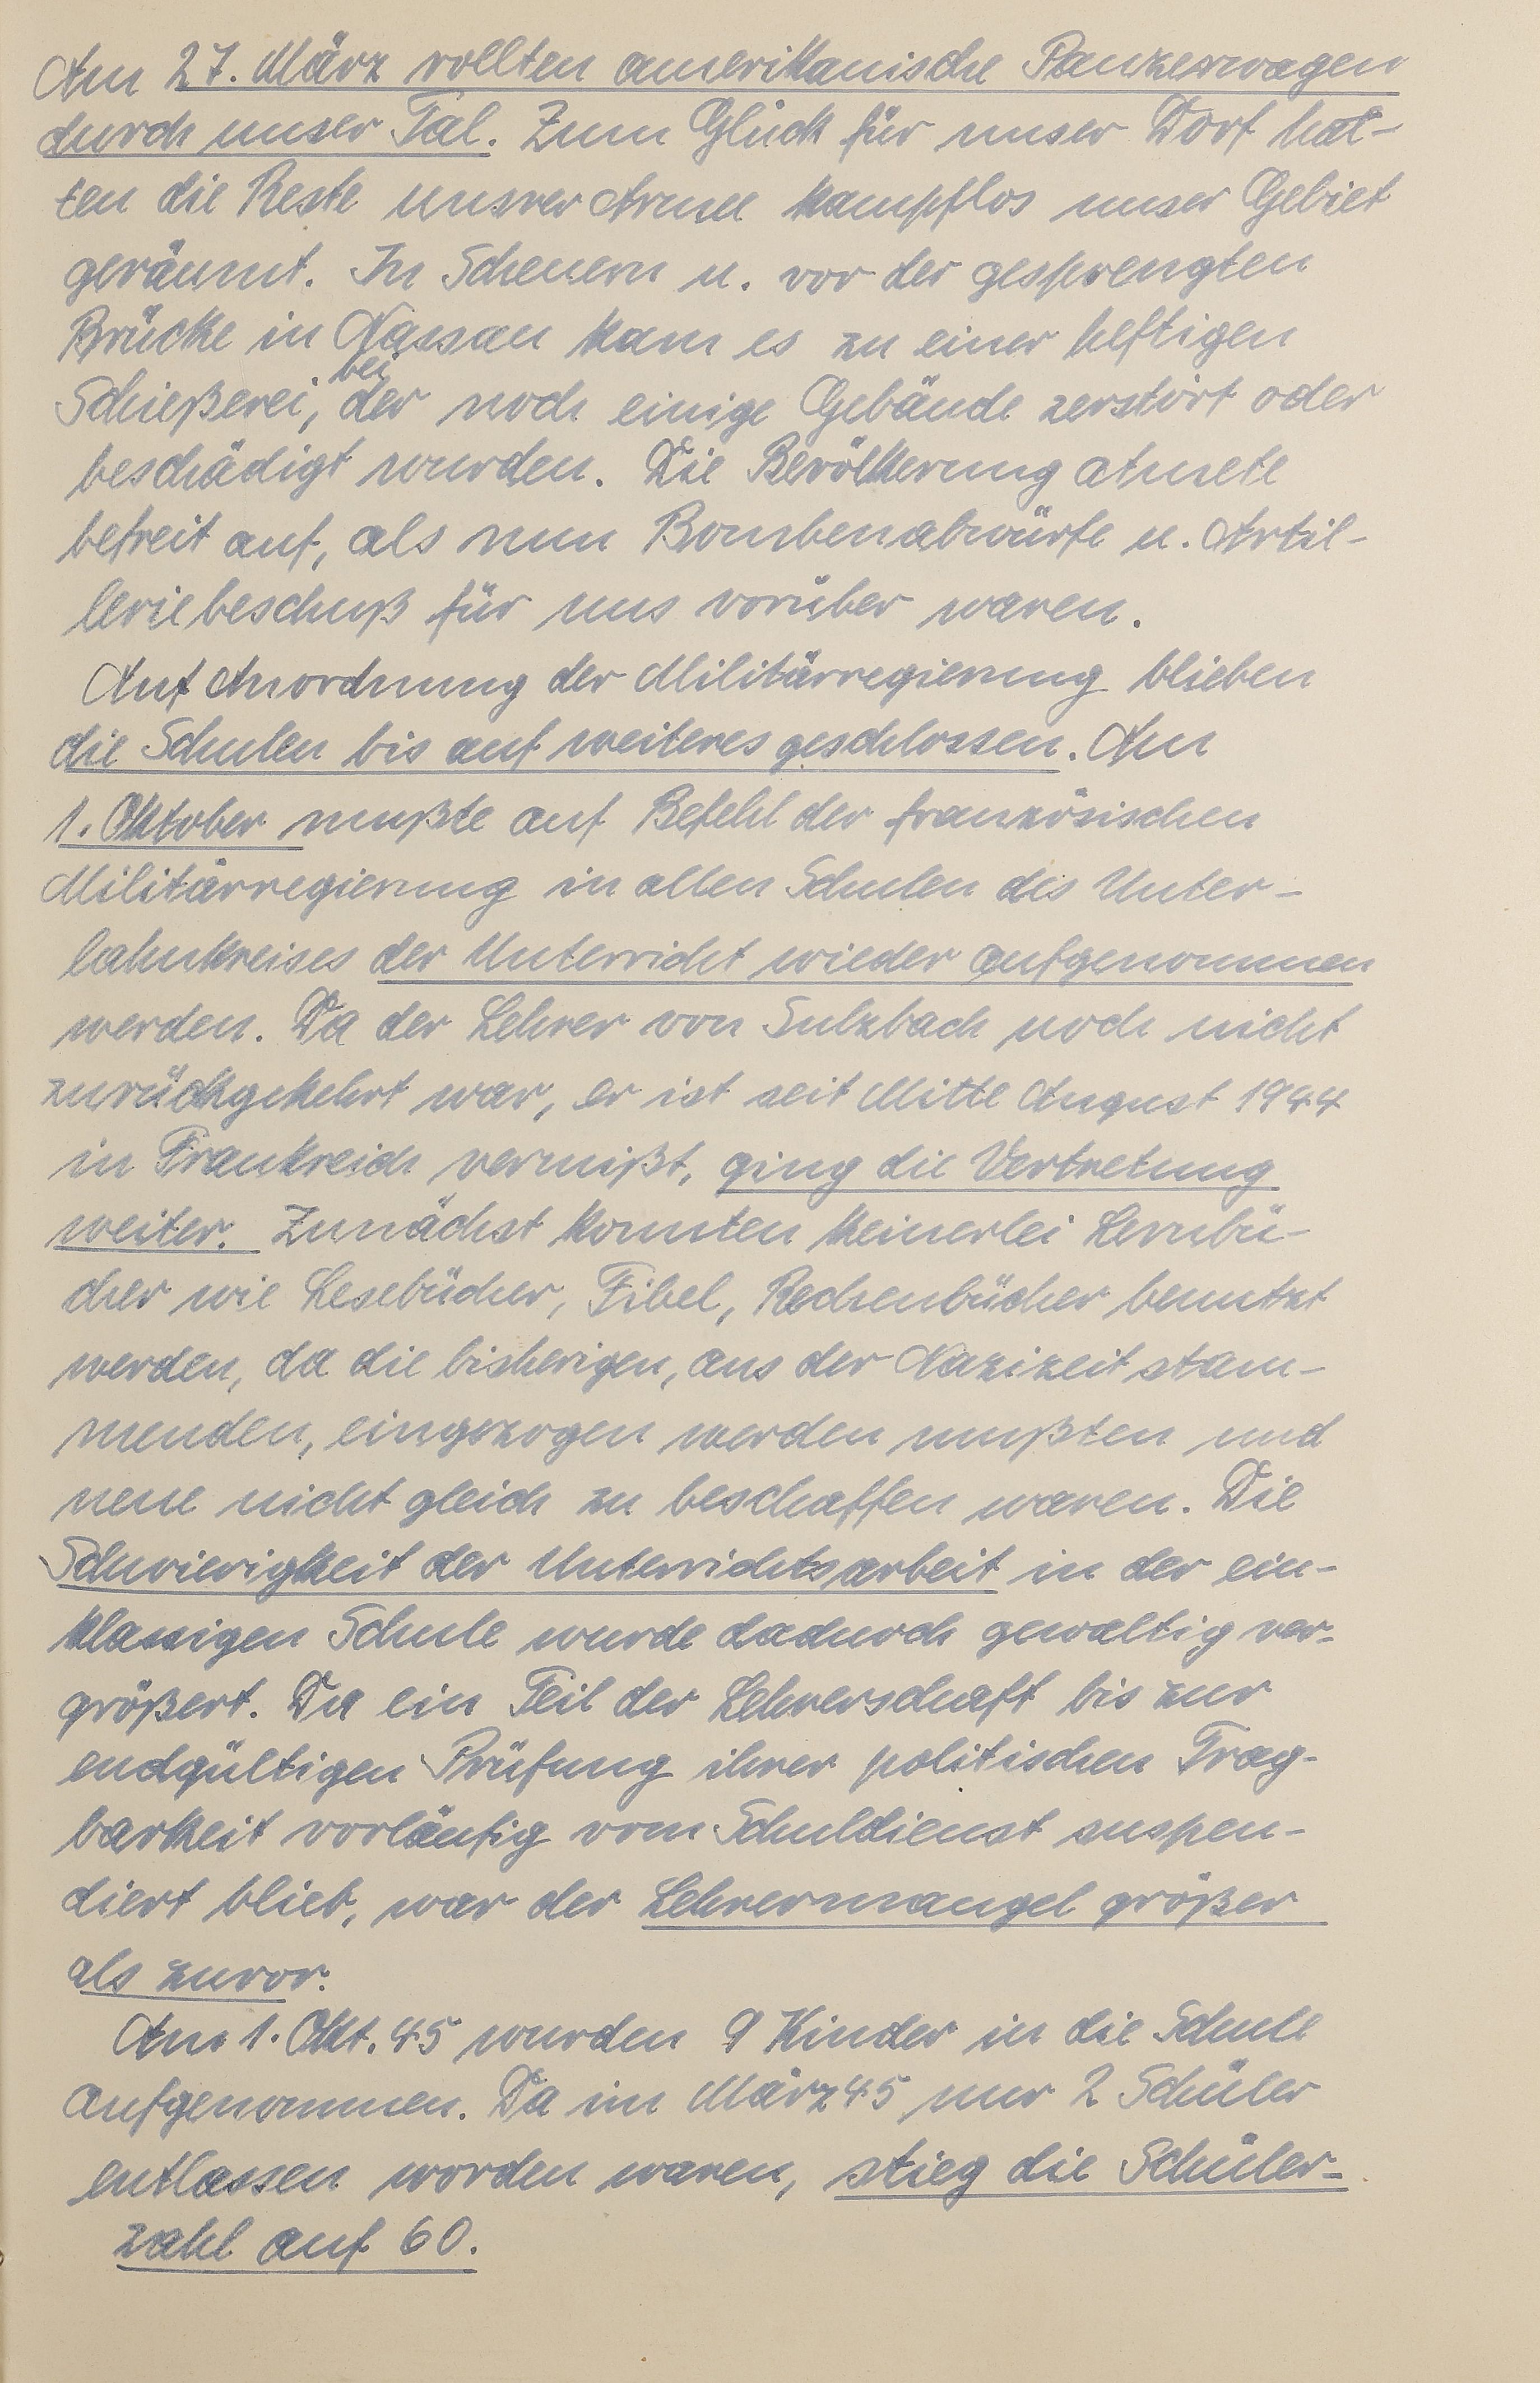 Am 27. März rollten amerikanische Panzerwagen
durch unser Tal. Zum Glück für unser Dorf hat-
ten die Reste unsrer Armee kampflos unser Gebiet
geräumt. In Scheuern u. vor der gesprengten
Brücke in Nassau kam es zu einer heftigen
bei
Schießerei, der noch einige Gebäude zerstört oder
beschädigt wurden. Die Bevölkerung atmete
befreit auf, als nun Bombenabwürfe u. Artil-
leriebeschuß für uns vorüber waren.
Auf Anordnung der Militärregierung blieben
die Schulen bis auf weiteres geschlossen. Am
1. Oktober mußte auf Befehl der französischen
Militärregierung in allen Schulen des Unter-
lahnkreises der Unterricht wieder aufgenommen
werden. Da der Lehrer von Sulzbach noch nicht
zurückgekehrt war, er ist seit Mitte August 1944
in Frankreich vermißt, ging die Vertretung
weiter. Zunächst konnten keinerlei Lernbü-
cher wie Lesebücher, Fibel, Rechenbücher benutzt
werden, da die bisherigen, aus der Nazizeit stam-
menden, eingezogen werden mußten und
neue nicht gleich zu beschaffen waren. Die
Schwierigkeit der Unterrichtsarbeit in der ein-
klassigen Schule wurde dadurch gewaltig ver-
größert. Da ein Teil der Lehrerschaft bis zur
endgültigen Prüfung ihrer politischen Trag-
barkeit vorläufig vom Schuldienst suspen-
diert blieb, war der Lehrermangel größer
als zuvor.
Am 1. Okt. 45 wurden 9 Kinder in die Schule
aufgenommen. Da im März 45 nur 2 Schüler
entlassen worden waren, stieg die Schüler-
zahl auf 60.